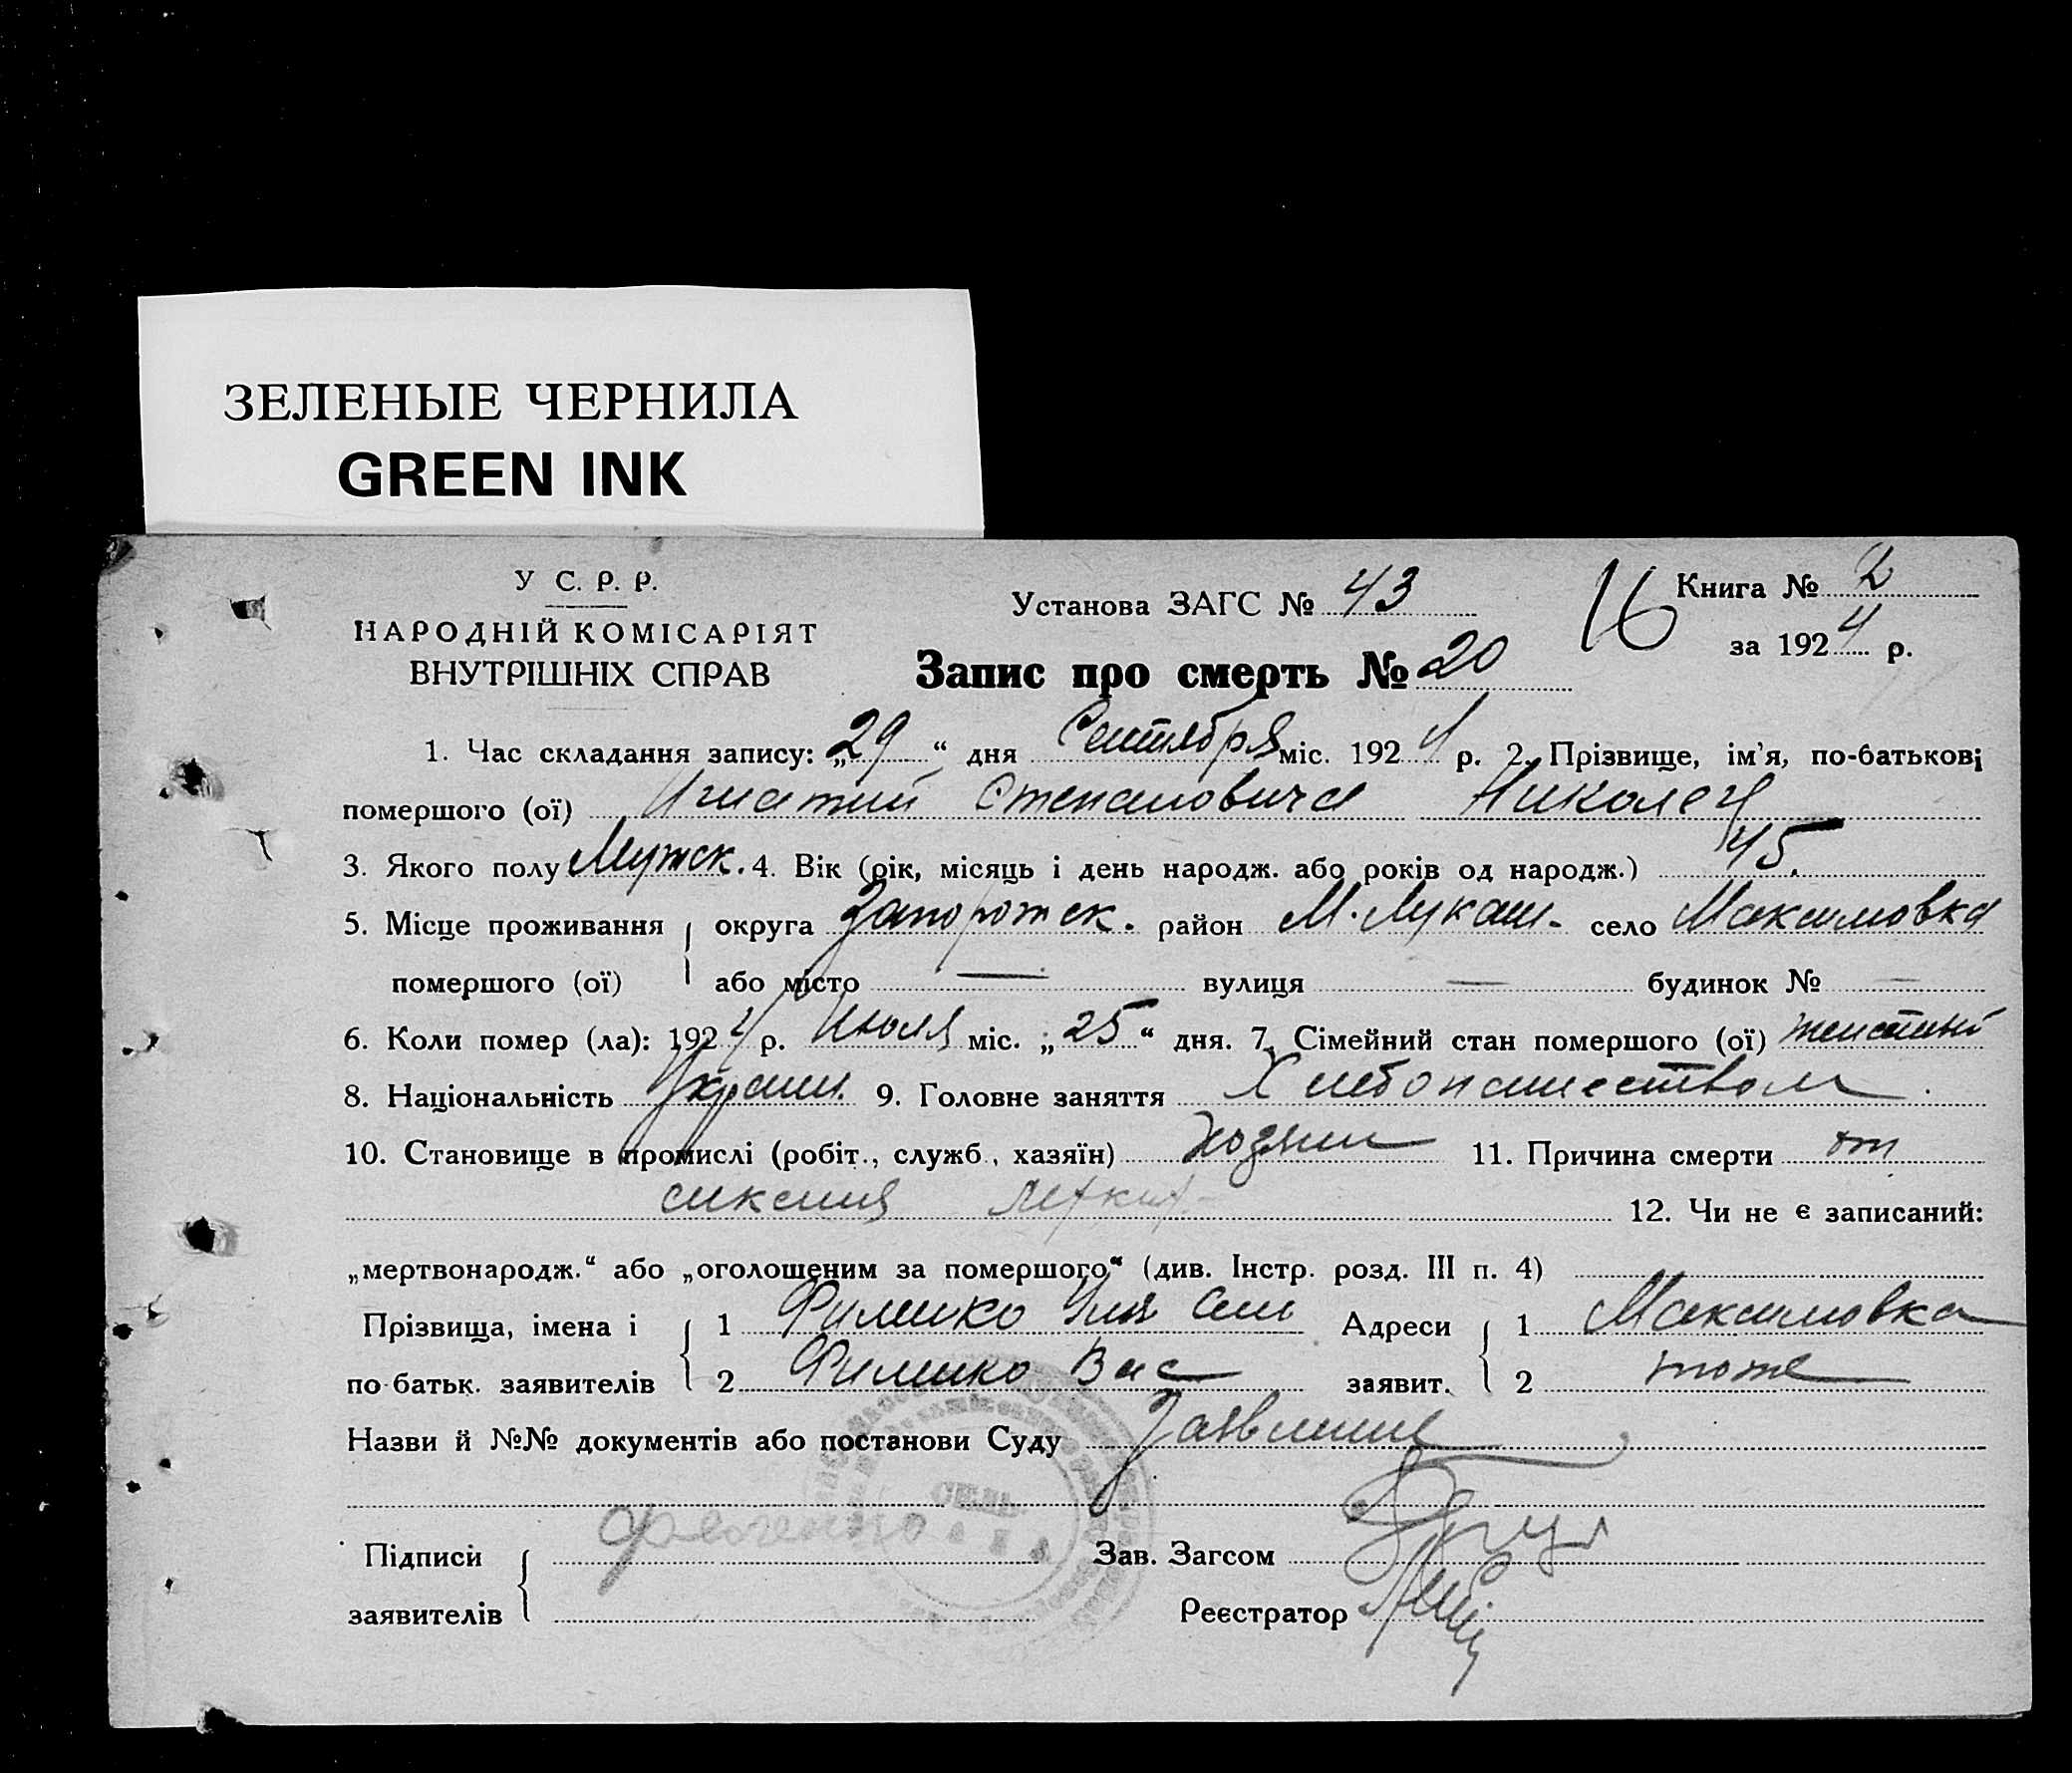 ЗЕЛЕНЫЕ ЧЕРНИЛА
GREEN INK
У С. Р. Р.
НАРОДНІЙ КОМІСАРІЯТ
ВНУТРІШНІХ СПРАВ
Установа ЗАГС № 43
16
Книга № 2
за 1924 р.
Запис про смерть № 20
1. Час складання запису: „29“ дня Сентября міс. 1924 р. 2. Прізвище, ім’я, по-батькові
помершого (ої) Игнатий Степановича
3. Якого полу Мужск. 4. Вік (рік, місяць і день народж. або років од народж.) 45.
5. Місце проживання { округа Запорожск. район М. Лукаш. село Максимовка
помершого (ої) або місто — вулиця — будинок № —
6. Коли помер (ла): 1924 р. Июля міс. „25“ дня. 7. Сімейний стан помершого (ої) женатый
8. Національність Украин. 9. Головне заняття Хлебопашеством
10. Становище в промислі (робіт., служб., хазяїн) хозяин 11. Причина смерти от
легких 12. Чи не є записаний:
„мертвонародж.“ або „оголошеним за помершого“ (див. Інстр. розд. III п. 4)
Прізвища, імена і { 1 Филипко Адреси { 1 Максимовка
по батьк. заявителів 2 Филипко Вас заявит. 2 тоже
Назви й №№ документів або постанови Суду Заявление
Підписи { Зав. Загсом
заявителів Реєстратор